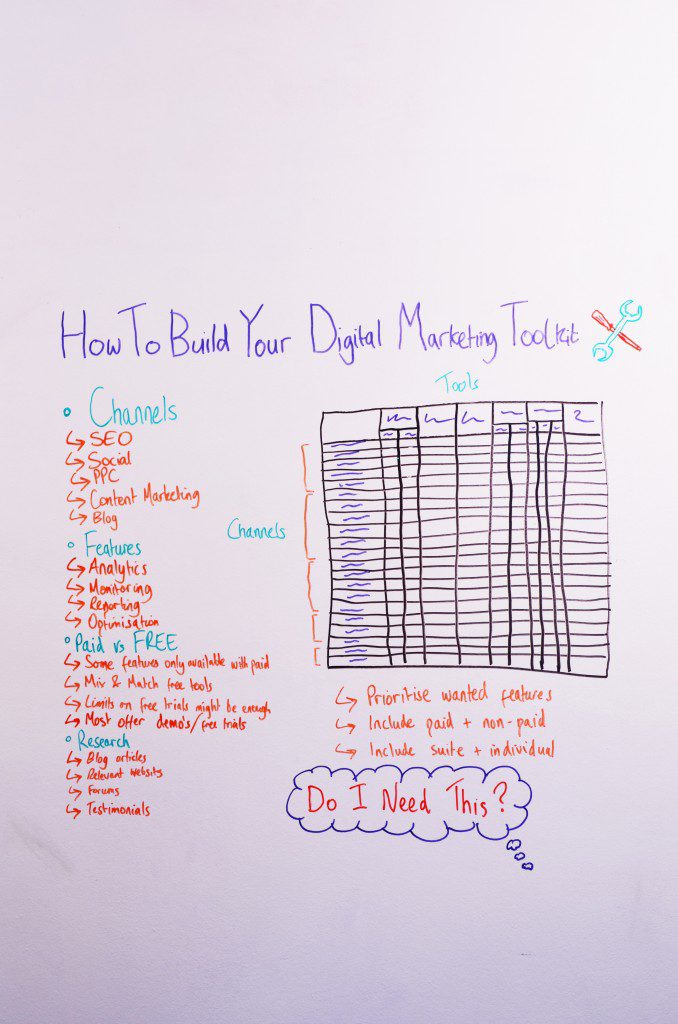 How To Build Your Digital Marketing Toolkit
Channels
SEO
Social
PPC
Content Marketing
Blog
Features
Analytics
Monitoring
Reporting
Optimisation
Paid vs FREE
Some features only available with paid
Mix & Match free tools
Limits on free trials might be enough
Most offer demo's/free trials
Research
Blog articles
Relevant websites
Forums
Testimonials
Tools
Channels
Prioritise wanted features
Include paid + non-paid
Include suite + individual
Do I Need This?